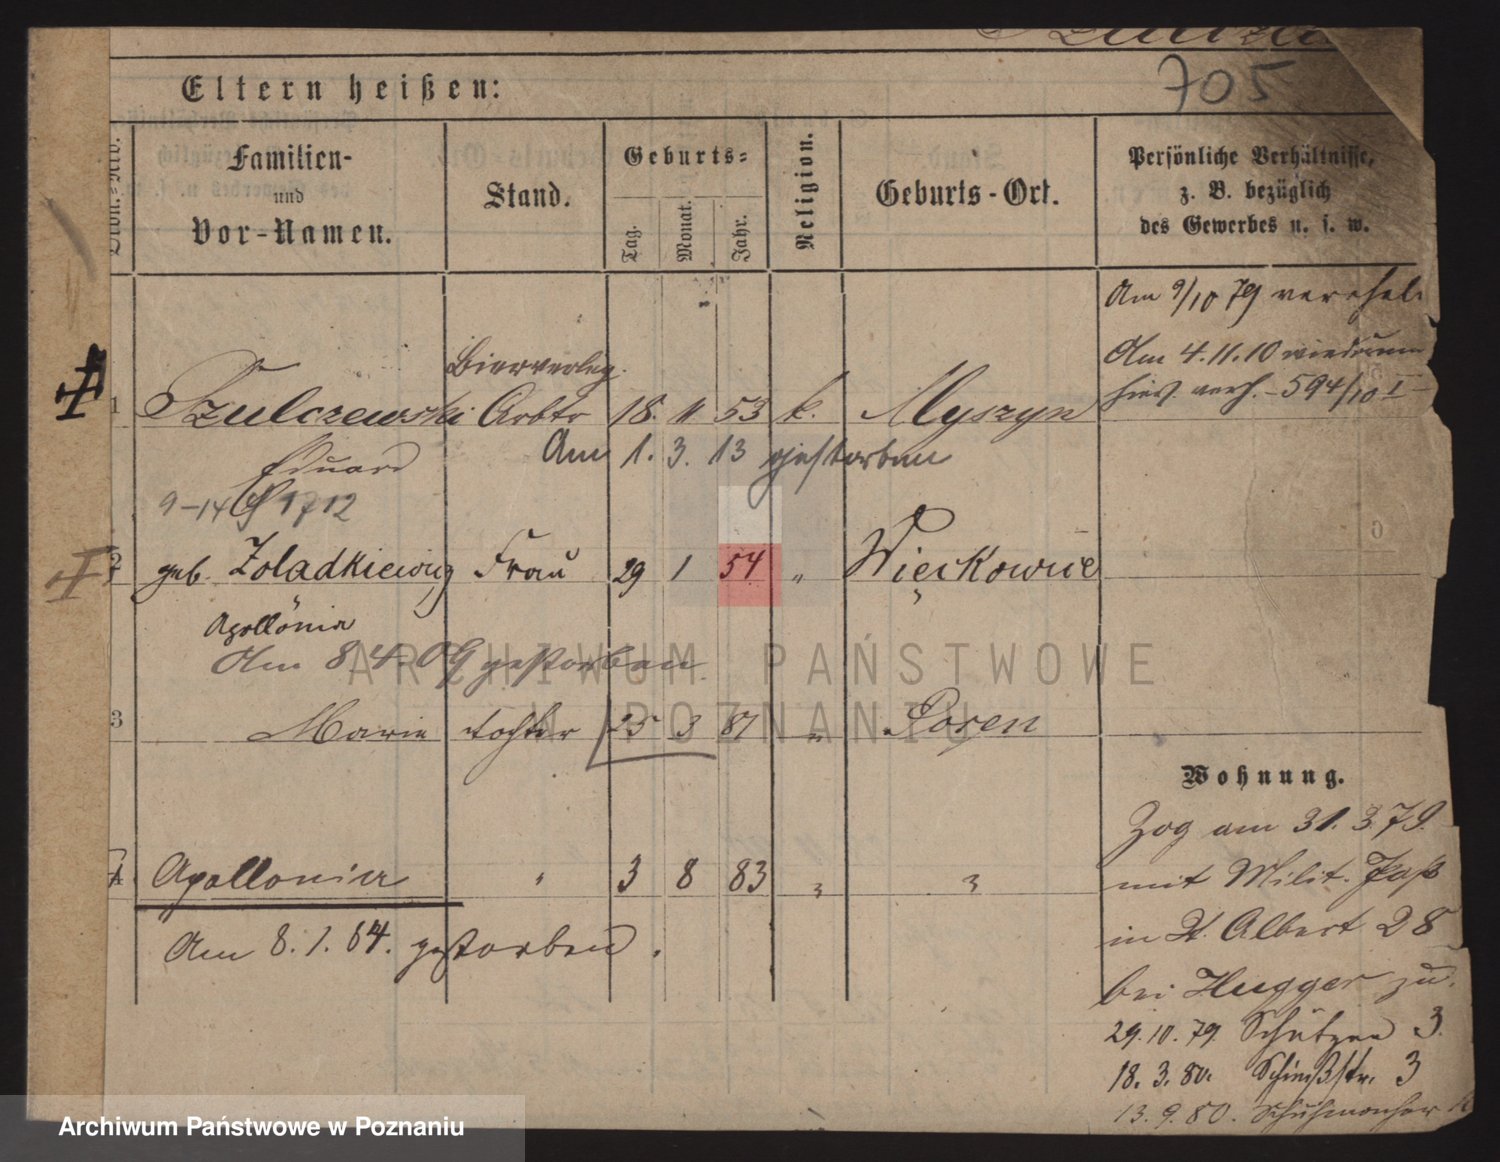 705
Eltern heißen:
Familien-
und
Vor-Namen.
Stand.
Geburts-
Tag.
Monat.
Jahr.
Religion.
Geburts-Ort.
Persönliche Verhältnisse,
z. B. bezüglich
des Gewerbes u. s. w.
Am 9/10 79 verehel.
Am 4.11.10 wiederum
hies. verh. - 594/10 I
Bierverleg.
1 Szulczewski Arbtr 18. 11 53 k. Myszyn
Eduard
Am 1. 3. 13 gestorben
9-14 1712
2 geb. Zoladkiewicz Frau 29 1 54 " Więckowice
Apollönia
Am 8.4.09 gestorben
3 Marie Tochter 25 3 81 " Posen
4 Apollonia " 3 8 83 " "
Am 8. 1. 84. gestorben.
Wohnung.
Zog am 31. 3. 79.
mit Milit. Paß
in St. Albert 28
bei Hugger zu.
29. 10. 79. Schützen 3.
18. 3. 80. Schießstr. 3
13. 9. 80. Schuhmacher
ARCHIWUM PAŃSTWOWE
W POZNANIU
Archiwum Państwowe w Poznaniu